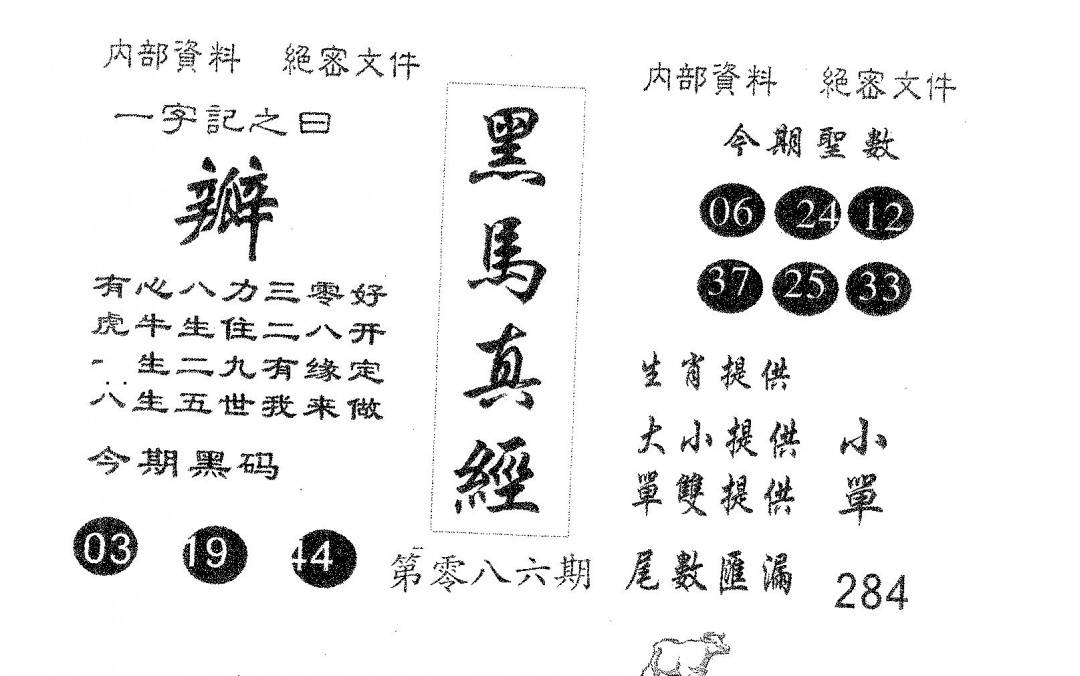 内部資料 絕密文件
一字記之曰
瓣
有心八力三零好
虎牛生住二八开
生二九有缘定
八生五世我来做
今期黑码
03 19 44
黑馬真經
第零八六期
内部資料 絕密文件
今期聖數
06 24 12
37 25 33
生肖提供
大小提供 小
單雙提供 單
尾數匯漏 284